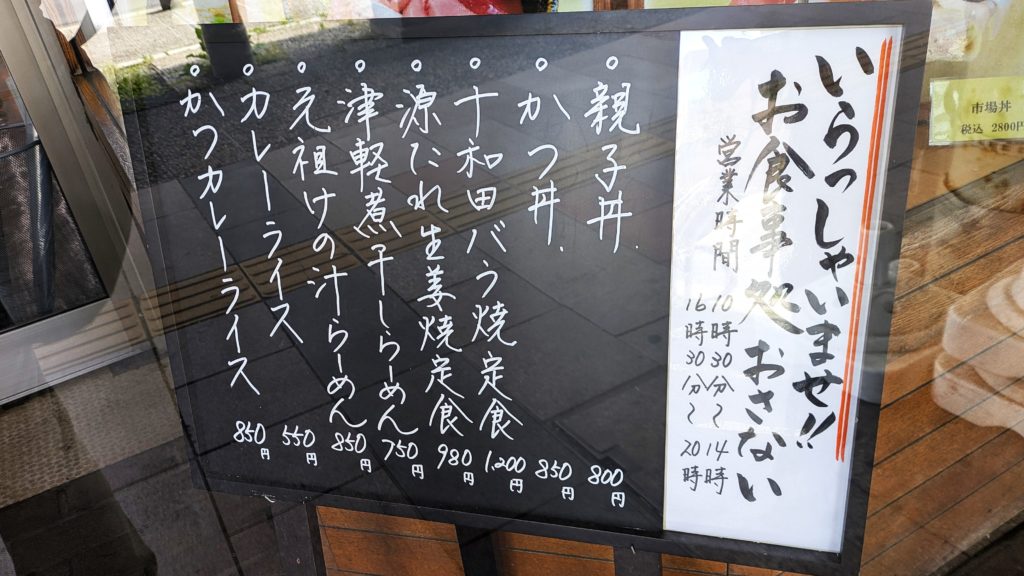 いらっしゃいませ!!
お食事処 おさない
営業時間
10時30分〜14時
16時30分〜20時
。親子丼 800円
。かつ丼 850円
。十和田バラ焼定食 1,200円
。源たれ生姜焼定食 980円
。津軽煮干しらーめん 750円
。元祖けの汁らーめん 850円
。カレーライス 550円
。かつカレーライス 850円
市場丼
税込 2800円